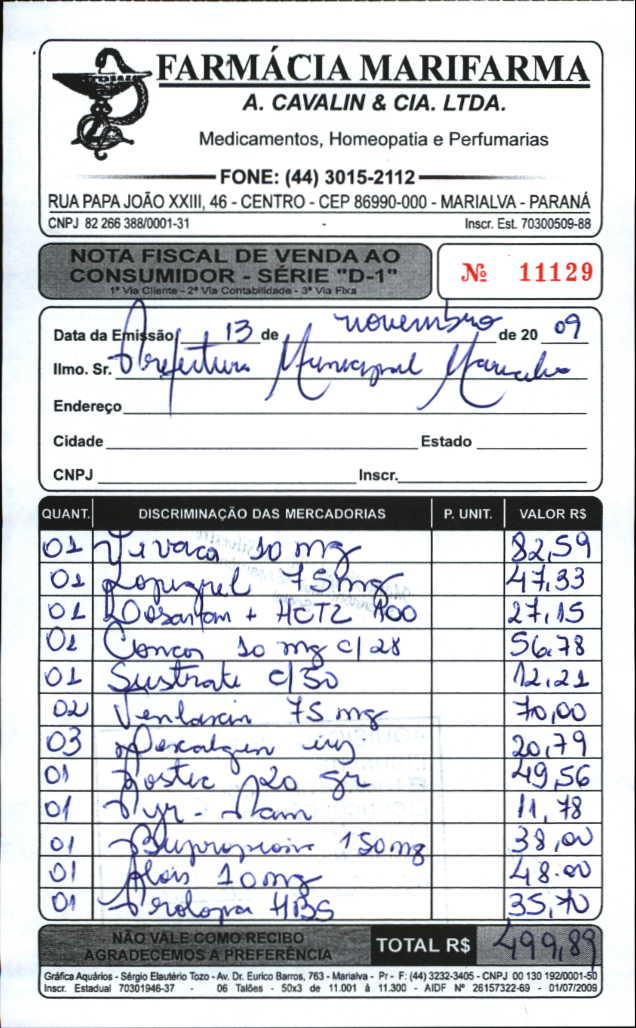 FARMÁCIA MARIFARMA
A. CAVALIN & CIA. LTDA.
Medicamentos, Homeopatia e Perfumarias
FONE: (44) 3015-2112
RUA PAPA JOÃO XXIII, 46 - CENTRO - CEP 86990-000 - MARIALVA - PARANÁ
CNPJ 82 266 388/0001-31 - Inscr. Est. 70300509-88
NOTA FISCAL DE VENDA AO
CONSUMIDOR - SÉRIE "D-1"
1ª Via Cliente - 2ª Via Contabilidade - 3ª Via Fixa
Nº 11129
Data da Emissão 13 de novembro de 20 09
Ilmo. Sr. Prefeitura Municipal Marialva
Endereço
Cidade Estado
CNPJ Inscr.
QUANT. DISCRIMINAÇÃO DAS MERCADORIAS P. UNIT. VALOR R$
01 10 mg 82,59
01 Lopigrel 75mg 47,33
01 Losartan + HCTZ 100 27,15
01 Concor 10 mg c/28 56,78
01 Sustrate c/50 12,21
02 Venlaxin 75 mg 70,00
03 inj 20,79
01 20 49,56
01 Pyr-Pam 11,78
01 Bupropiona 150mg 38,00
01 Alois 10mg 48.00
01 Prolopa HBS 35,70
NÃO VALE COMO RECIBO
AGRADECEMOS A PREFERÊNCIA
TOTAL R$ 499,89
Gráfica Aquários - Sérgio Elautério Tozo - Av. Dr. Eurico Barros, 763 - Marialva - Pr - F: (44) 3232-3405 - CNPJ 00 130 192/0001-50
Inscr. Estadual 70301946-37 - 06 Talões - 50x3 de 11.001 à 11.300 - AIDF Nº 26157322-69 - 01/07/2009